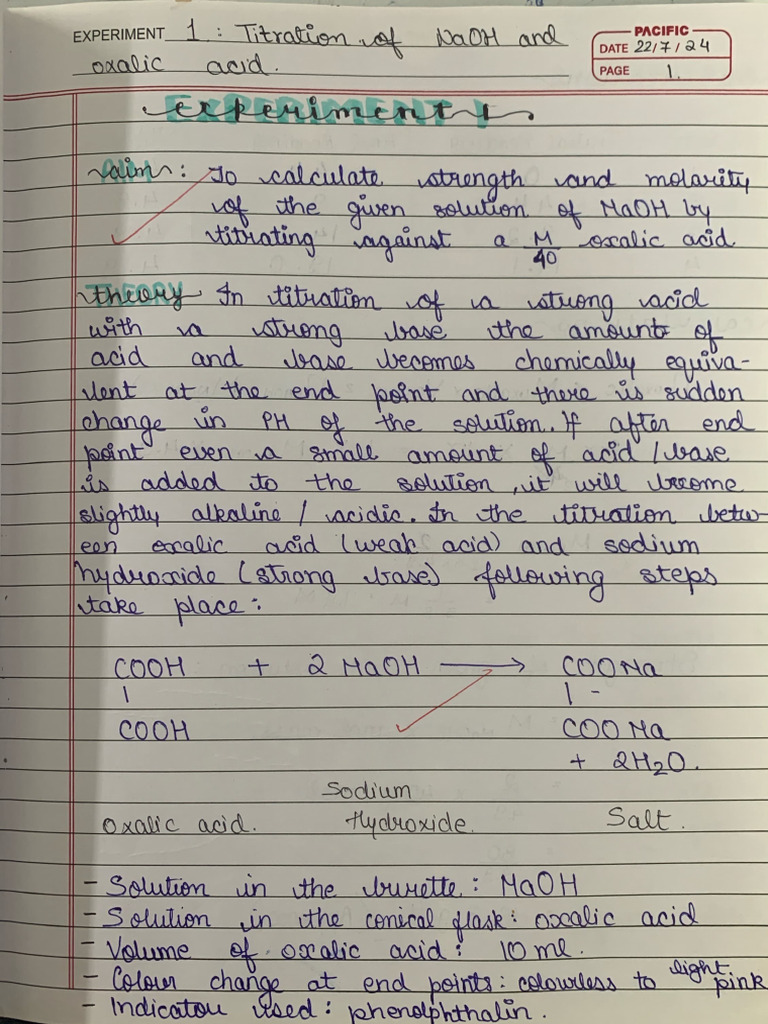 EXPERIMENT 1 : Titration of NaOH and
oxalic acid.
PACIFIC
DATE 22/7/24
PAGE 1.
EXPERIMENT 1
Aim: To calculate strength and molarity
of the given solution of NaOH by
titrating against a M/40 oxalic acid
Theory In titration of a strong acid
with a strong base the amounts of
acid and base becomes chemically equiva-
lent at the end point and there is sudden
change in PH of the solution. If after end
point even a small amount of acid / base
is added to the solution, it will become
slightly alkaline / acidic. In the titration betw-
een oxalic acid (weak acid) and sodium
hydroxide (strong base) following steps
take place:
COOH + 2 NaOH ⟶ COONa
| | -
COOH COONa
+ 2H₂O.
Sodium
Oxalic acid. Hydroxide. Salt.
- Solution in the burette: NaOH
- Solution in the conical flask: oxcalic acid
- Volume of oxalic acid: 10 ml.
- Colour change at end points: colourless to light pink
- Indicator used: phenolphthalin.